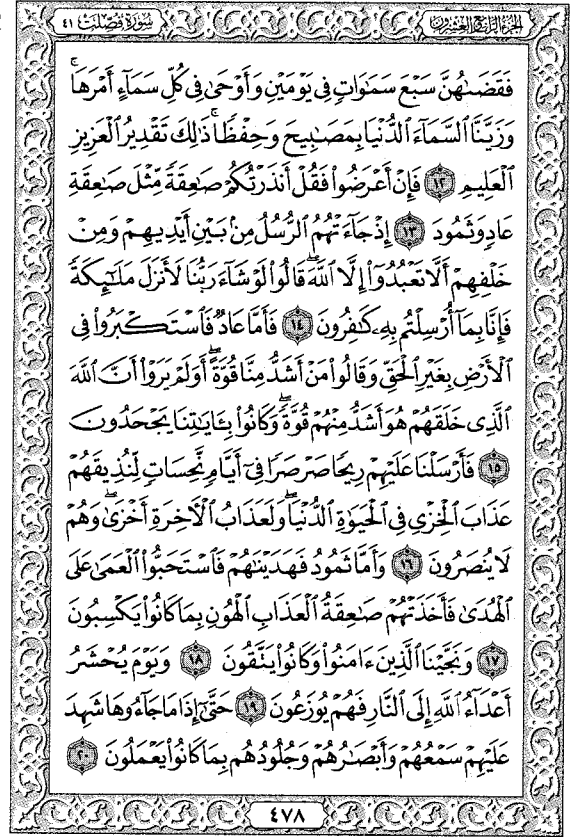 الجزء الرابع والعشرون
سورة فصلت ٤١
فَقَضَىٰهُنَّ سَبْعَ سَمَٰوَاتٍ فِي يَوْمَيْنِ وَأَوْحَىٰ فِي كُلِّ سَمَآءٍ أَمْرَهَاۚ
وَزَيَّنَّا ٱلسَّمَآءَ ٱلدُّنْيَا بِمَصَٰبِيحَ وَحِفْظًاۚ ذَٰلِكَ تَقْدِيرُ ٱلْعَزِيزِ
ٱلْعَلِيمِ ١٢ فَإِنْ أَعْرَضُوا۟ فَقُلْ أَنذَرْتُكُمْ صَٰعِقَةً مِّثْلَ صَٰعِقَةِ
عَادٍ وَثَمُودَ ١٣ إِذْ جَآءَتْهُمُ ٱلرُّسُلُ مِنۢ بَيْنِ أَيْدِيهِمْ وَمِنْ
خَلْفِهِمْ أَلَّا تَعْبُدُوٓا۟ إِلَّا ٱللَّهَۖ قَالُوا۟ لَوْ شَآءَ رَبُّنَا لَأَنزَلَ مَلَٰٓئِكَةً
فَإِنَّا بِمَآ أُرْسِلْتُم بِهِۦ كَٰفِرُونَ ١٤ فَأَمَّا عَادٌ فَٱسْتَكْبَرُوا۟ فِي
ٱلْأَرْضِ بِغَيْرِ ٱلْحَقِّ وَقَالُوا۟ مَنْ أَشَدُّ مِنَّا قُوَّةًۖ أَوَلَمْ يَرَوْا۟ أَنَّ ٱللَّهَ
ٱلَّذِي خَلَقَهُمْ هُوَ أَشَدُّ مِنْهُمْ قُوَّةًۖ وَكَانُوا۟ بِـَٔايَٰتِنَا يَجْحَدُونَ
١٥ فَأَرْسَلْنَا عَلَيْهِمْ رِيحًا صَرْصَرًا فِيٓ أَيَّامٍ نَّحِسَاتٍ لِّنُذِيقَهُمْ
عَذَابَ ٱلْخِزْيِ فِي ٱلْحَيَوٰةِ ٱلدُّنْيَاۖ وَلَعَذَابُ ٱلْأٓخِرَةِ أَخْزَىٰۖ وَهُمْ
لَا يُنصَرُونَ ١٦ وَأَمَّا ثَمُودُ فَهَدَيْنَٰهُمْ فَٱسْتَحَبُّوا۟ ٱلْعَمَىٰ عَلَى
ٱلْهُدَىٰ فَأَخَذَتْهُمْ صَٰعِقَةُ ٱلْعَذَابِ ٱلْهُونِ بِمَا كَانُوا۟ يَكْسِبُونَ
١٧ وَنَجَّيْنَا ٱلَّذِينَ ءَامَنُوا۟ وَكَانُوا۟ يَتَّقُونَ ١٨ وَيَوْمَ يُحْشَرُ
أَعْدَآءُ ٱللَّهِ إِلَى ٱلنَّارِ فَهُمْ يُوزَعُونَ ١٩ حَتَّىٰٓ إِذَا مَا جَآءُوهَا شَهِدَ
عَلَيْهِمْ سَمْعُهُمْ وَأَبْصَٰرُهُمْ وَجُلُودُهُم بِمَا كَانُوا۟ يَعْمَلُونَ ٢٠
٤٧٨